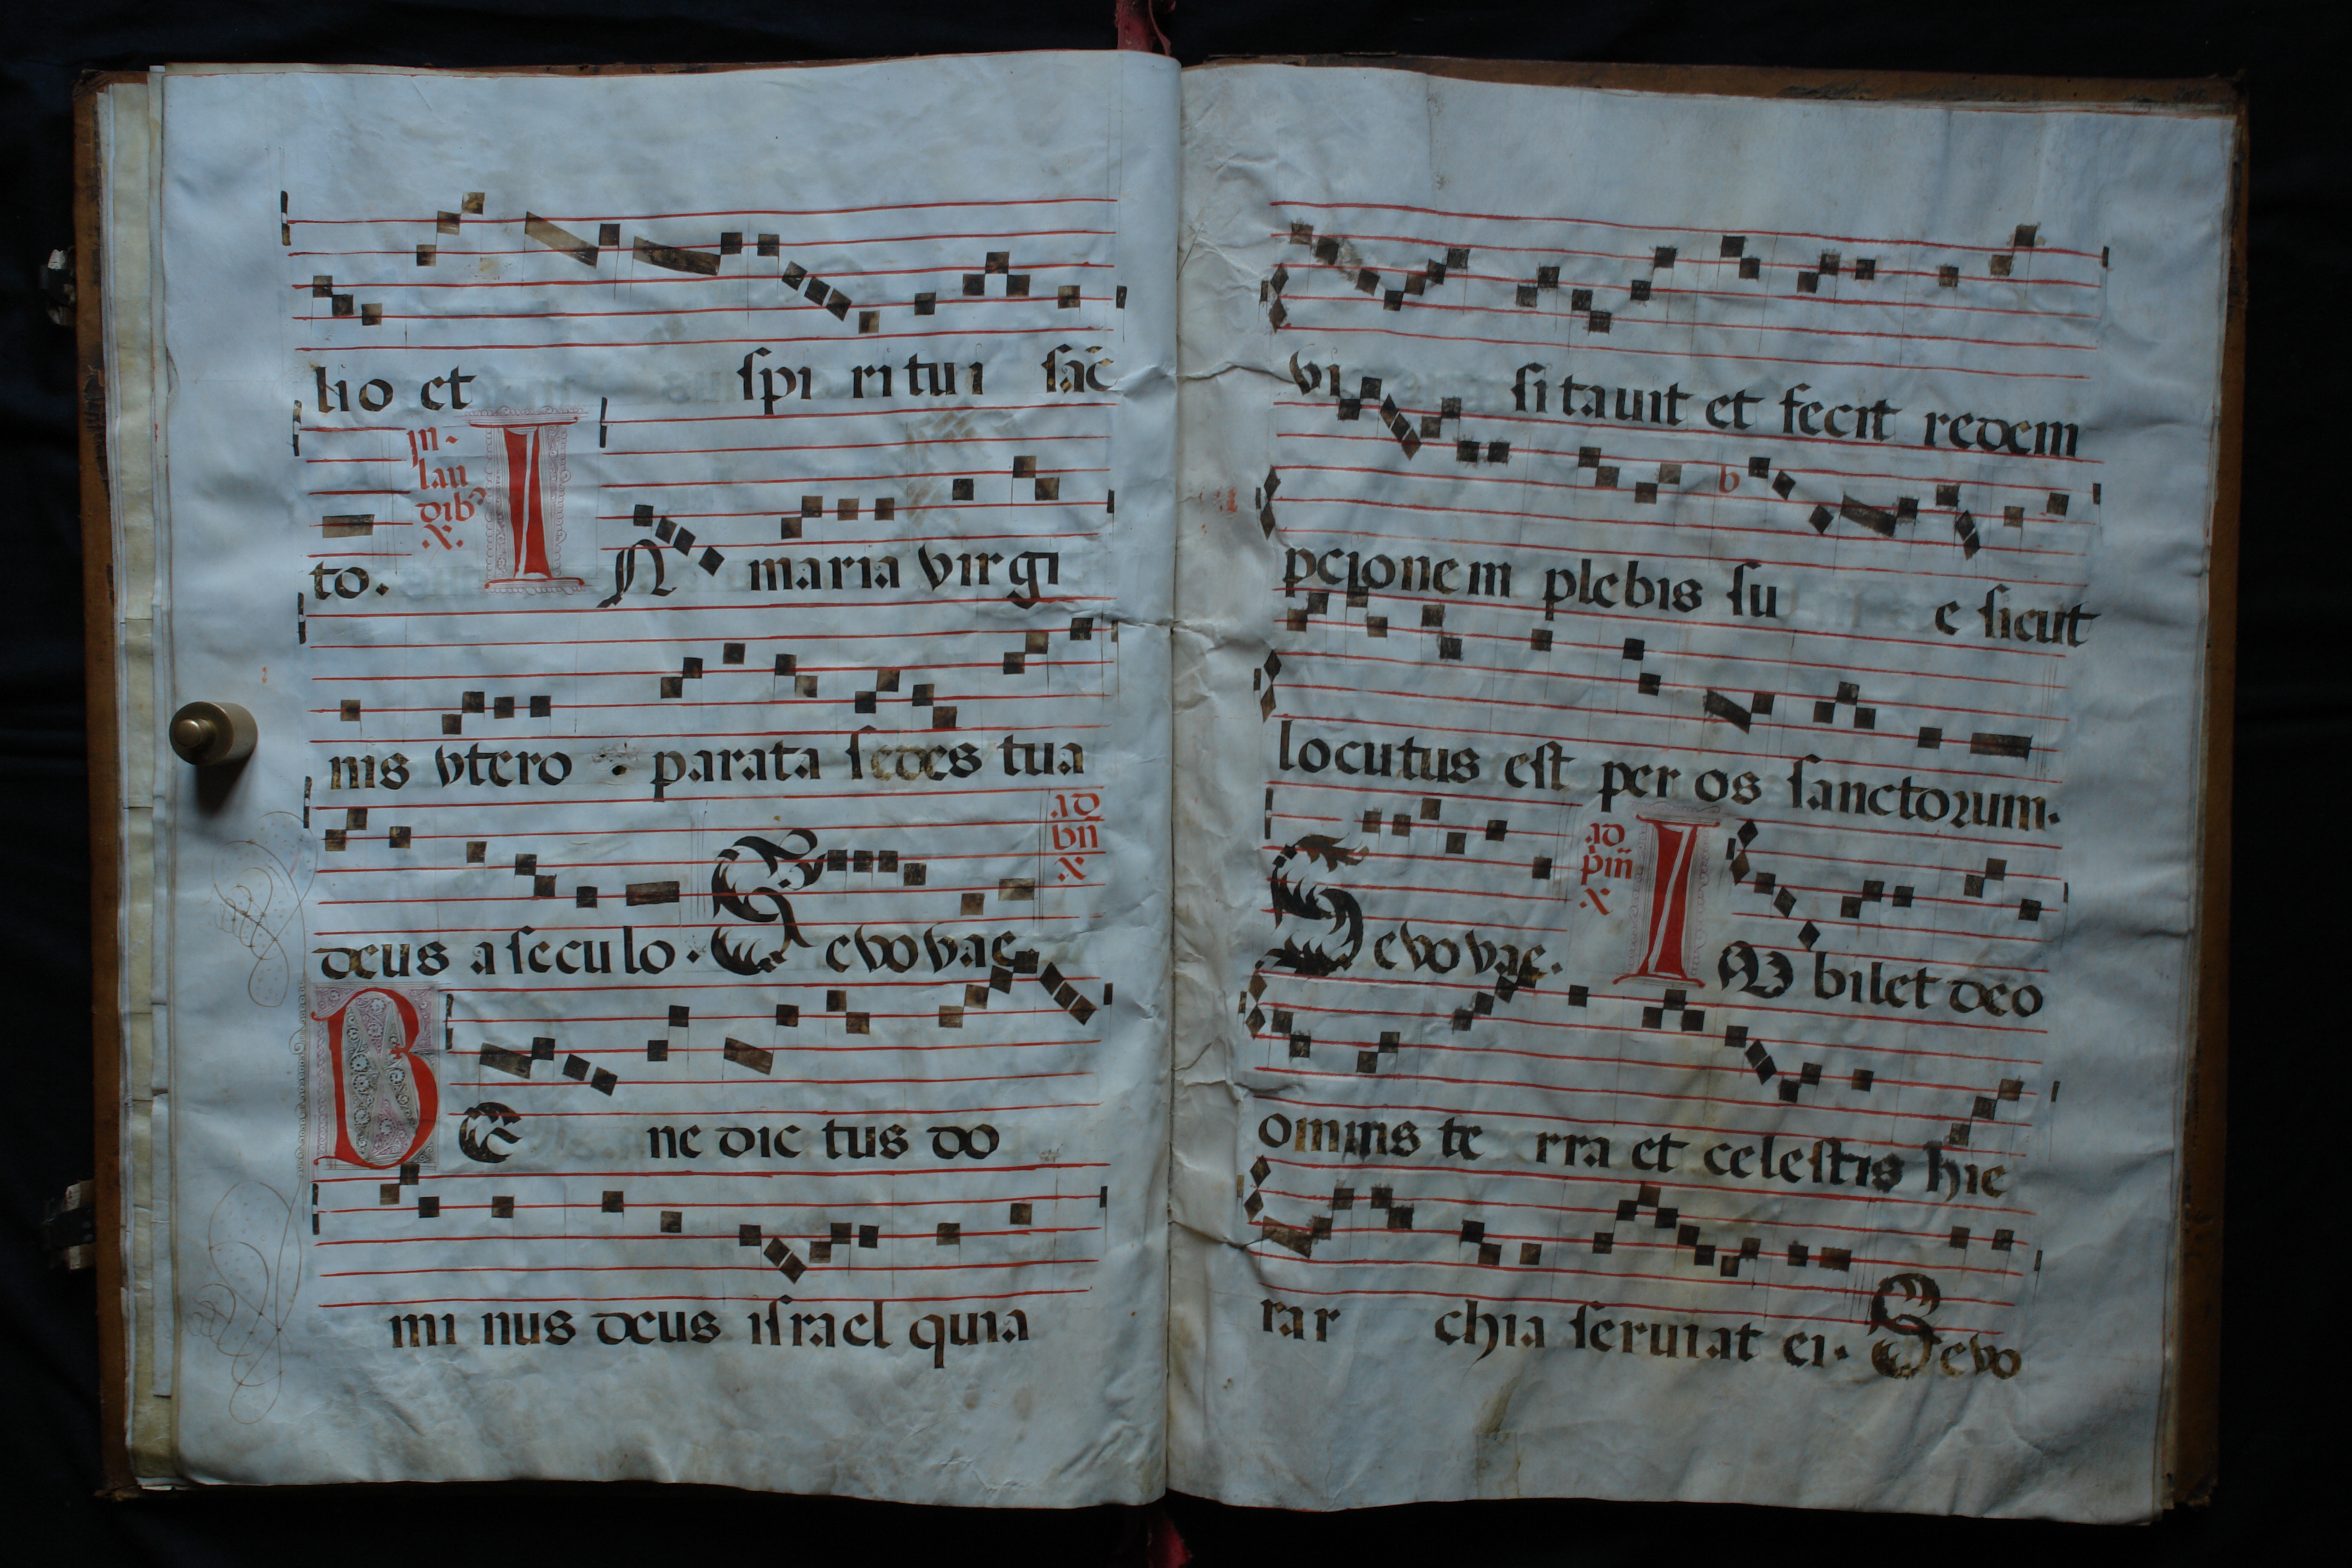 lio et spi ri tu i sac̄
in laudibꝰ
to. IN maria virgi
nis vtero . parata sedes tua
deus a seculo. Sevovae
ad bn̄
BE ne dic tus do
mi nus deus israel quia
vi si tauit et fecit redem
pcionem plebis su e sicut
locutus est per os sanctorum.
Sevovae. ad pm̄ IV bilet deo
omnis te rra et celestis hie
rar chia seruiat ei. Sevo